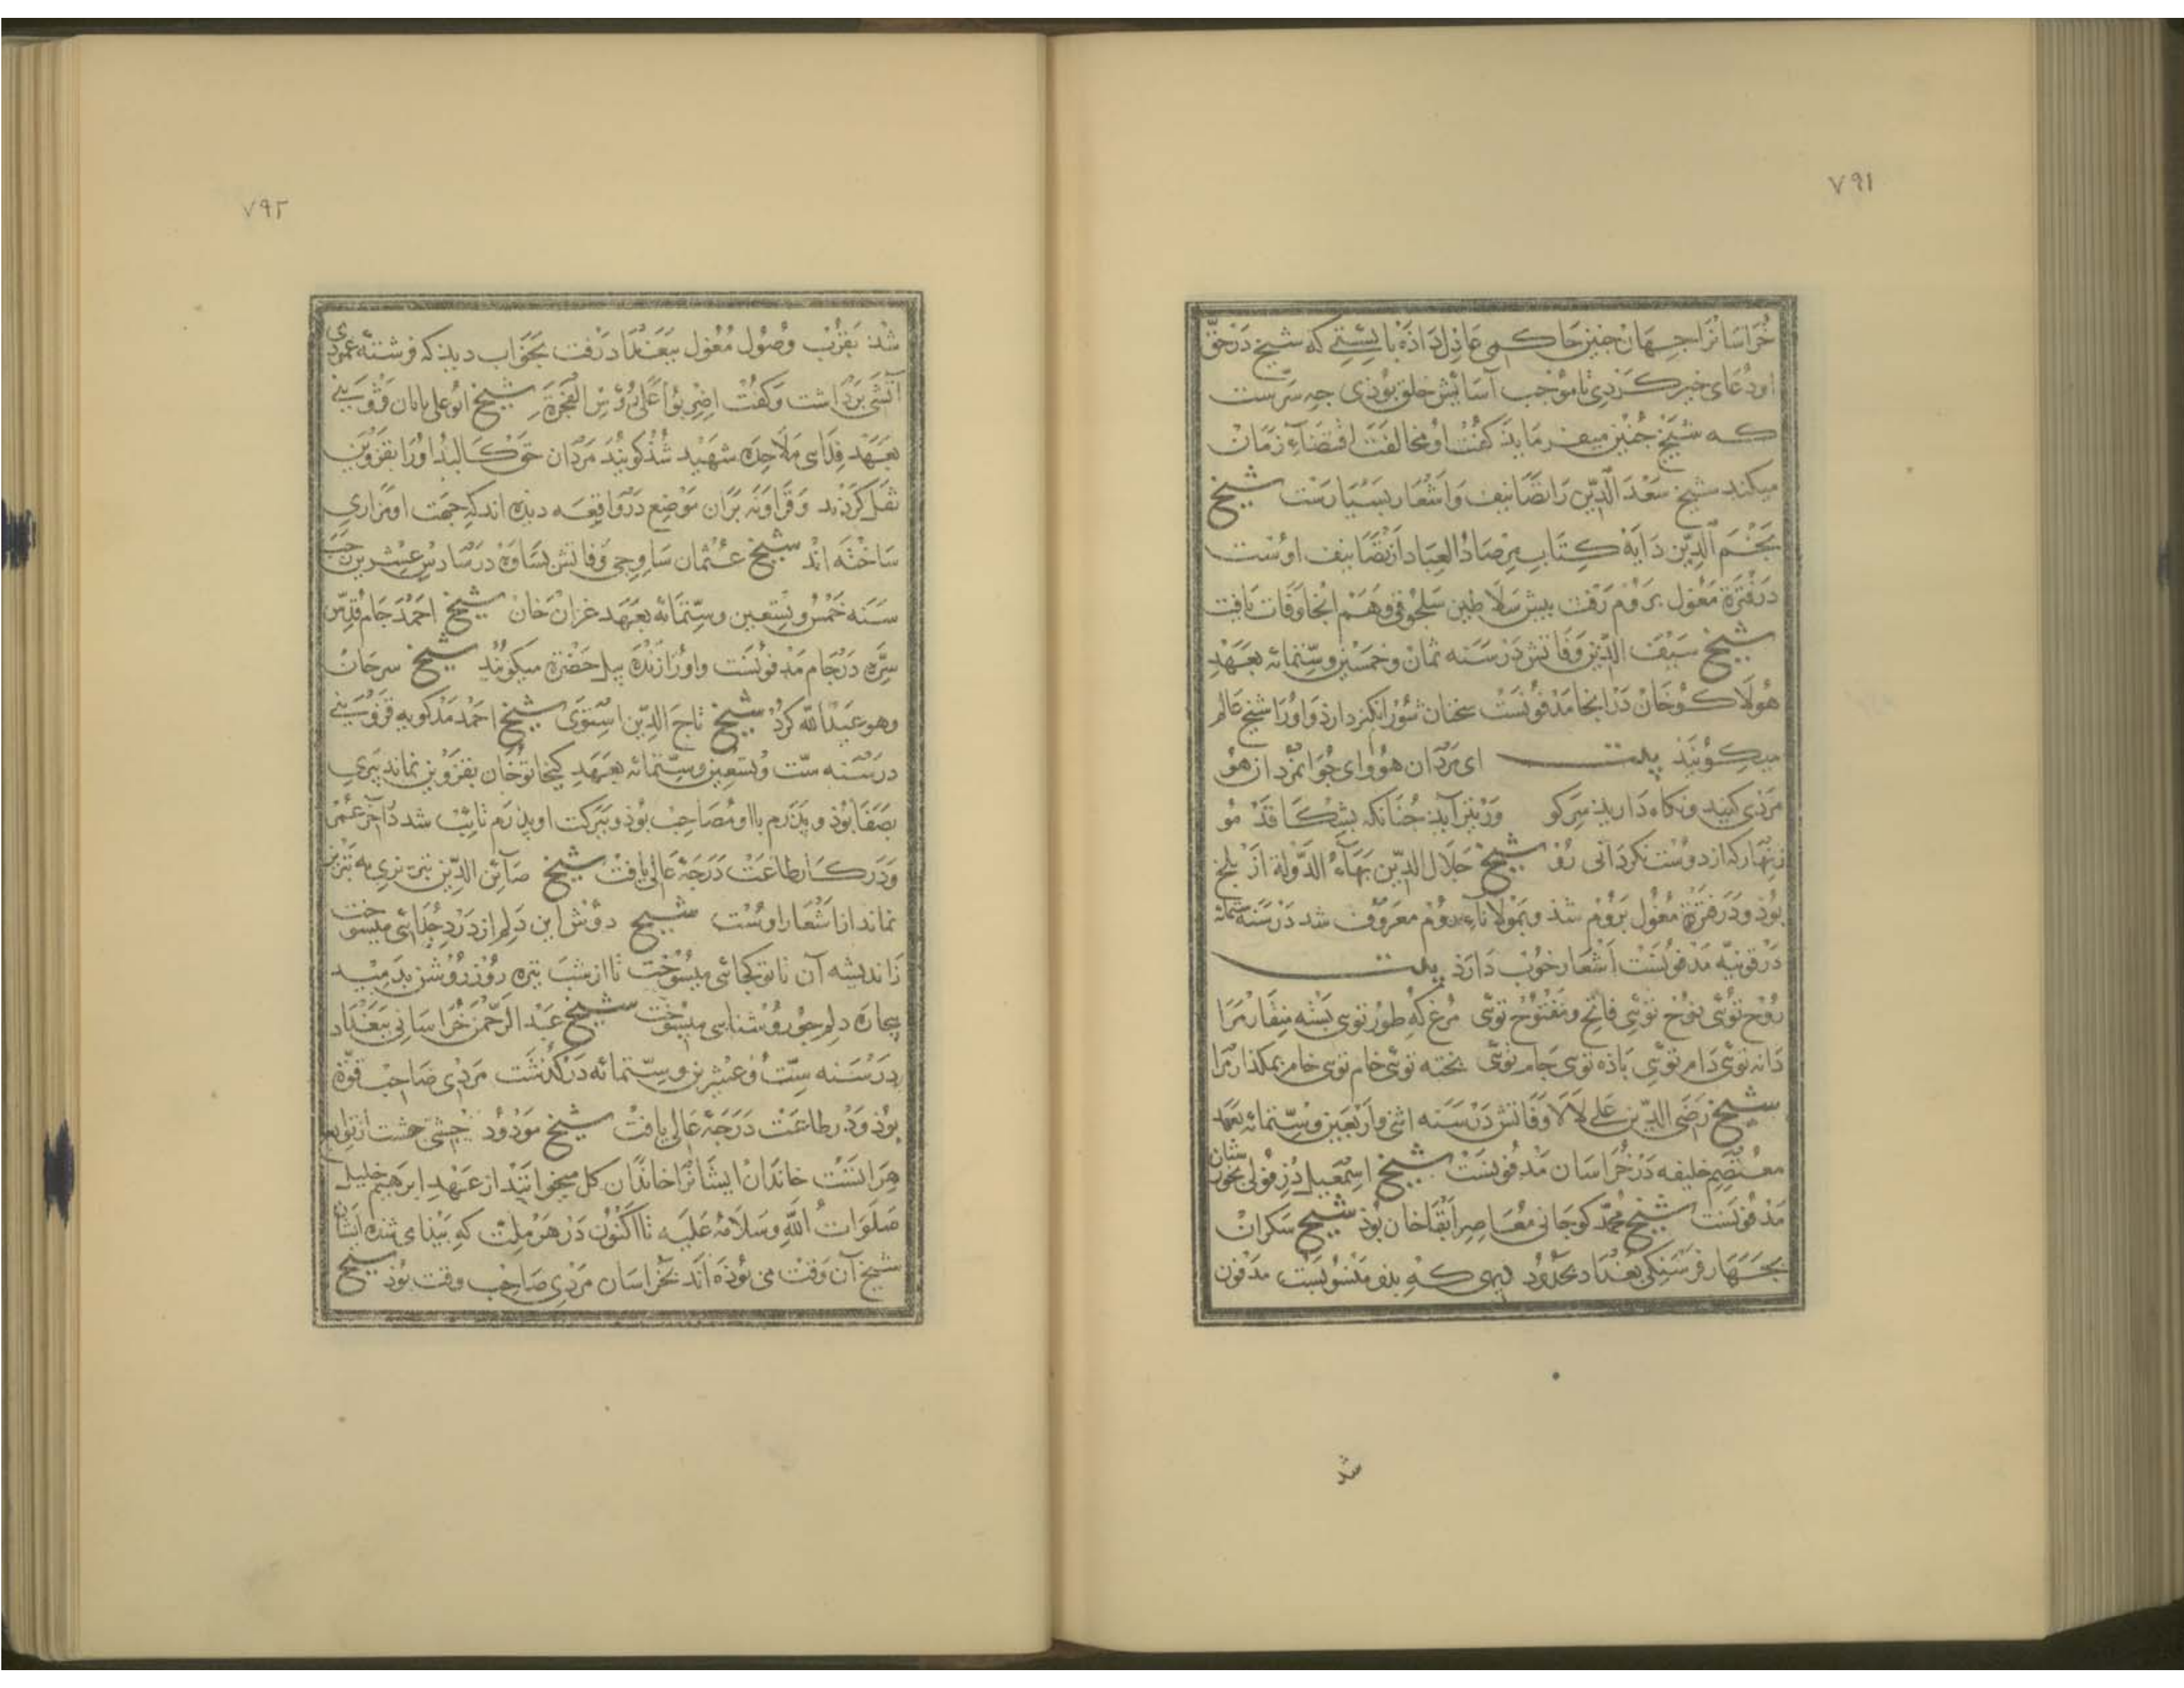 ۷۹۱
خراسانرا جهان جنین حاکمی عادل داده بایستی که شیخ درحق
او دعای خیر کردی تا موجب آسایش خلق بوذی جه سرست
که شیخ جنین میفرماید کفت او مخالفت اقتضاء زمان
میکند شیخ سعد الدین را تصانیف و اشعار بسیارست شیخ
نجم الدین دایه کتاب مرصاد العباد از تصانیف اوست
در فترة مغول بروم رفت بیش سلاطین سلجوقی و هم انجا وفات یافت
شیخ سیف الدین وفاتش در سنه ثمان و خمسین وستمائه بعهد
هولاکو خان در انجا مدفونست سخنان شورانکیز دارذ و اورا شیخ عالم
میکویند بیت ای مردان هو وای جوانمردان هو
مردی کنید و نکاه دارید سر کو ور تیر آید جنانکه بشکافد مو
زنهار که از دوست نکردانی رو شیخ جلال الدین بهاء الدولة از بلخ
بوذ و در فترة مغول بروم شذ و بمولاناء روم معروف شد در سنه ستمائه
در قونیه مدفونست اشعار خوب دارذ بیت
روح توئی نوح توئی فاتح و مفتوح توئی مرغ که طور توی بسته منقار مرا
دانه توئی دام توئی باذه توی جام توئی بخته توئی خام توی خام بمکذار مرا
شیخ رضی الدین علی لالا وفاتش در سنه اثنی واربعین وستمائه بعهد
معتصم خلیفه در خراسان مدفونست شیخ اسمعیل دزفولی بخوزستان
مدفونست شیخ محمد کوجانی معاصر ابقا خان بوذ شیخ سکران
بجهار فرسنکی بغداد بحدود دیهی که بذو منسوبست مدفون
شد
۷۹۲
شد بقرب وصول مغول ببغداد رفت بخواب دید که فرشته عمودی
آتشی برداشت و کفت اضربوا علی رؤس الفجرة شیخ ابوعلی بابان قزوینی
بعهد فدای ملاحده شهید شذ کویند مردان حق کالبد اورا بقزوین
نقل کردند و قراونه بران موضع در واقعه دیده اند که جهت او مزاری
ساخته اند شیخ عثمان ساوجی وفاتش بساوه در سادس عشرین رجب
سنه خمس و تسعین وستمائه بعهد غزان خان شیخ احمد جام قدس
سره در جام مدفونست و اورا زنده بیل حضرة میکویند شیخ سرحان
وهو عبدالله کرد شیخ تاج الدین اشنوی شیخ احمد مدکویه قزوینی
در سنه ست و تسعین وستمائه بعهد کیخاتو خان بقزوین نماند بیری
بصفا بوذ و بذرم با او مصاحب بوذ و ببرکت او بذرم تایب شد در آخر عمر
و در کار طاعت درجهٔ عالی یافت شیخ صائن الدین تبریزی به تبریز
نماند از اشعار اوست شیخ دوش این دلم از درد جدائی میسوخت
زاندیشه آن تا تو کجائی میسوخت تا از شب تیره روز روشن بدمید
بیچاره دلم جو روشنایی میسوخت شیخ عبد الرحمن خراسانی ببغداد
در سنه ست و عشرین وستمائه درکذشت مردی صاحب قوة
بوذ و در طاعت درجهٔ عالی یافت شیخ مودود جیشی جشت از توابع
هراتست خاندان ایشانرا خاندان کل میخوانند از عهد ابرهیم خلیل
صلوات الله وسلامه علیه تا اکنون در هر ملت که بیدای شده ایشان
شیخ آن وقت می بوذه اند بخراسان مردی صاحب وقت بوذ شیخ